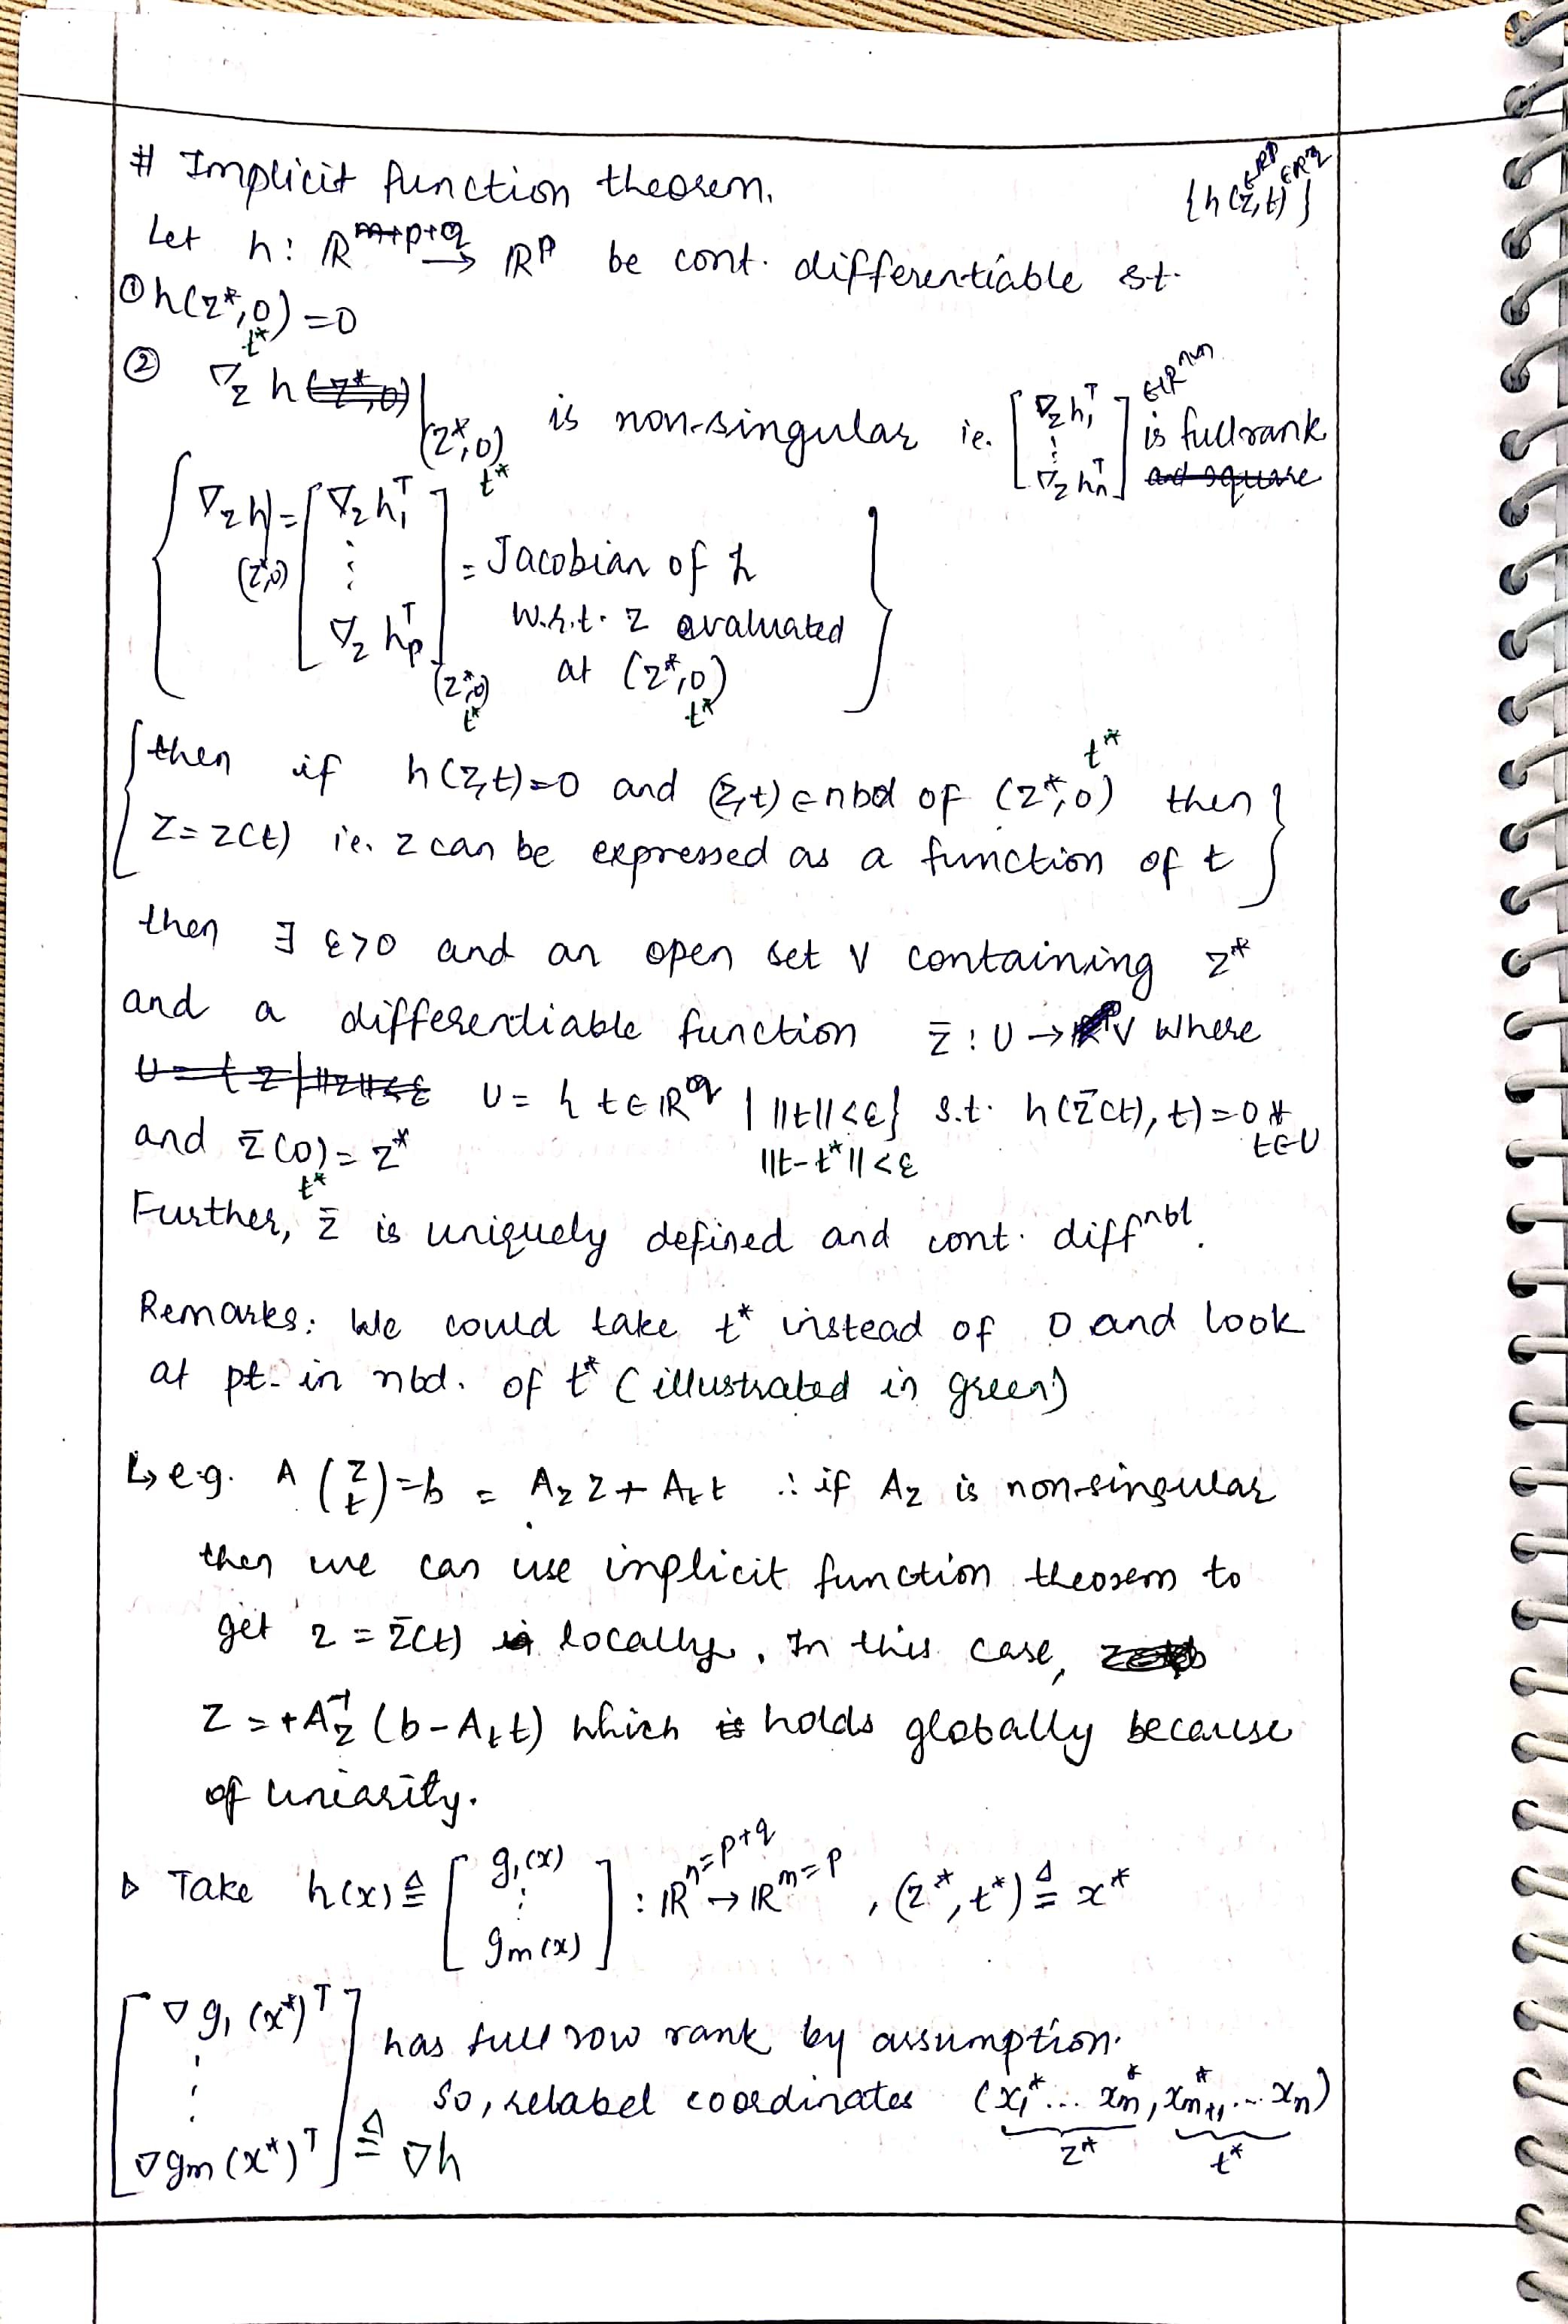 # Implicit function theorem.
{h(z,t)} ∈Rᵖ ∈R^q
Let h: R^{p+q} → Rᵖ be cont. differentiable st.
① h(z*,0) = 0
t*
② ∇_z h |_(z*,0) is non-singular ie. [∇_z h₁ᵀ ⋮ ∇_z hₙᵀ] ∈R^{n×n} is full rank
t*
{ ∇_z h|_(z*,0) = [∇_z h₁ᵀ ⋮ ∇_z h_pᵀ]_(z*,0) = Jacobian of h
w.r.t. z evaluated
at (z*,0) }
t* t*
t*
{ then if h(z,t)=0 and (z,t) ∈ nbd of (z*,0) then
z = z(t) ie. z can be expressed as a function of t }
then ∃ ε>0 and an open set V containing z*
and a differentiable function z̄ : U → V where
U = { t∈R^q | ||t||<ε} s.t. h(z̄(t), t) = 0 ∀
t∈U
and z̄(0) = z* ||t-t*||<ε
t*
Further, z̄ is uniquely defined and cont. diffnbl.
Remarks: We could take t* instead of 0 and look
at pt. in nbd. of t* (illustrated in green)
↳ e.g. A (z t) = b = A_z z + A_t t ∴ if A_z is non-singular
then we can use implicit function theorem to
get z = z̄(t) locally. In this case,
z = +A_z⁻¹ (b - A_t t) which holds globally because
of linearity.
▷ Take h(x) ≜ [g₁(x) ⋮ gₘ(x)] : R^{n=p+q} → R^{m=p} , (z*, t*) ≜ x*
[∇g₁(x*)ᵀ ⋮ ∇gₘ(x*)ᵀ] ≜ ∇h has full row rank by assumption.
So, relabel coordinates (x₁* ... xₘ*, xₘ₊₁* ... xₙ)
z* t*